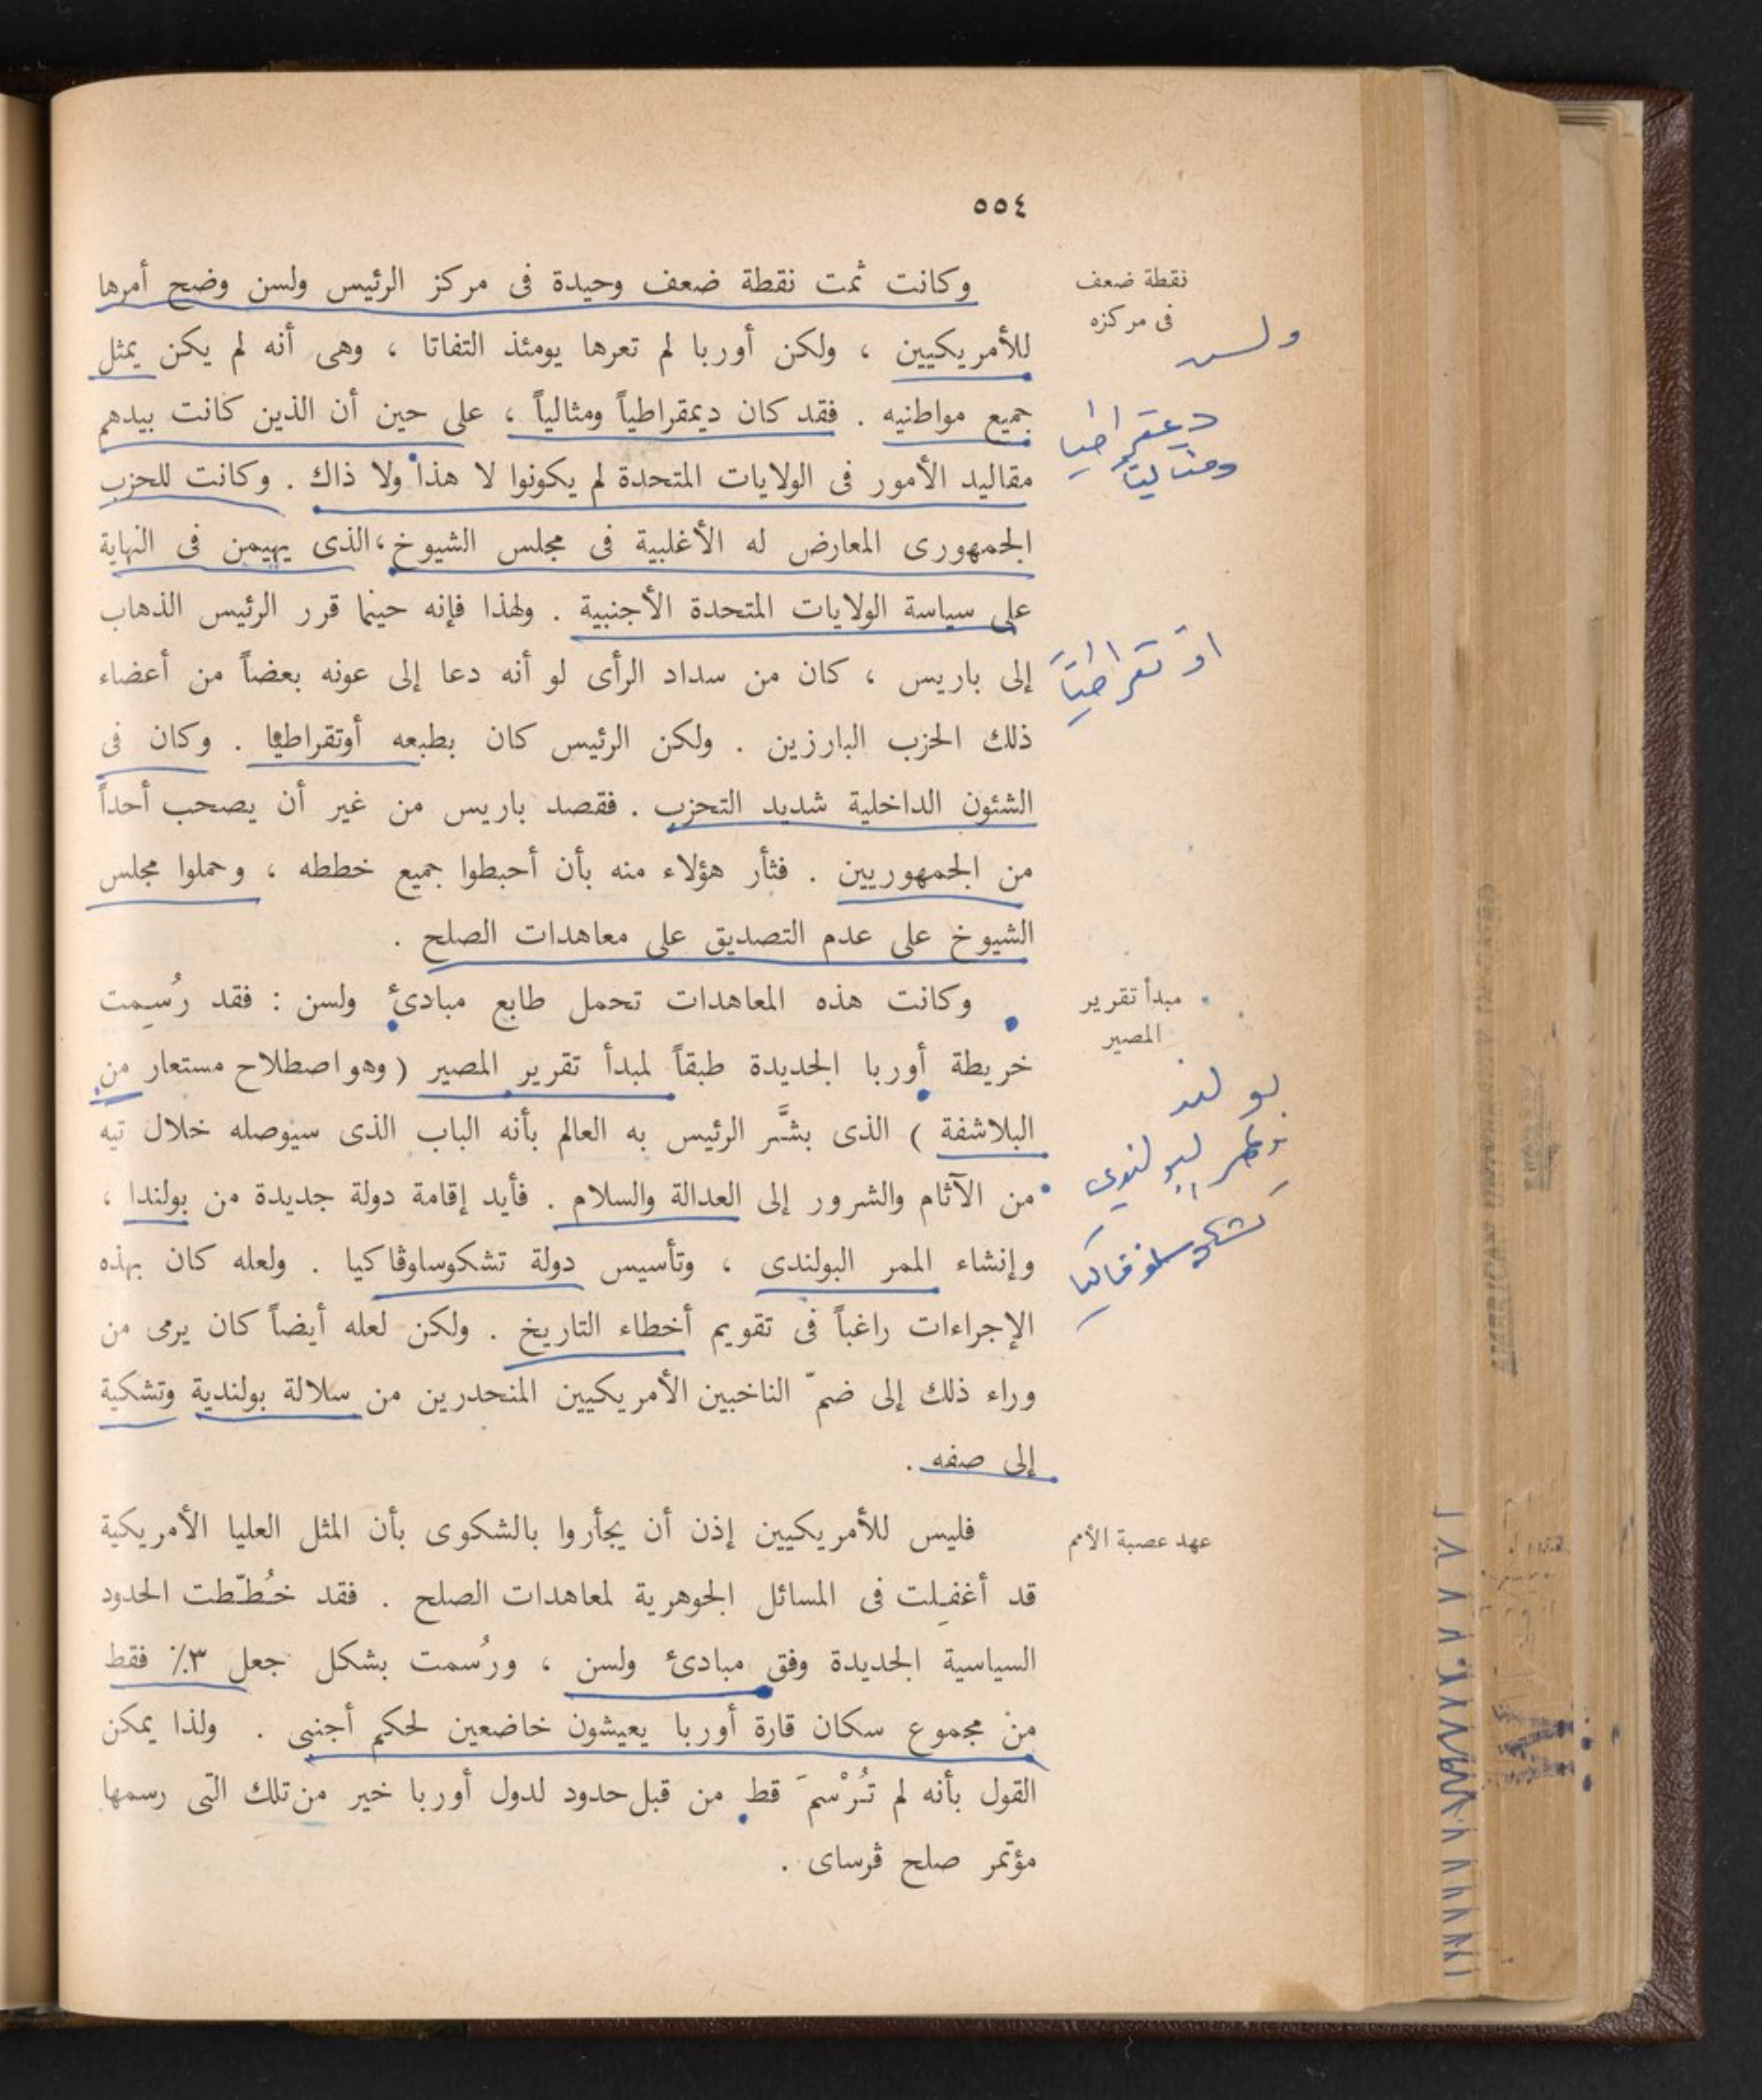 ٥٥٤
نقطة ضعف
فى مركزه
ولسن
وكانت ثمت نقطة ضعف وحيدة فى مركز الرئيس ولسن وضح أمرها
للأمريكيين ، ولكن أوربا لم تعرها يومئذ التفاتا ، وهى أنه لم يكن يمثل
جميع مواطنيه . فقد كان ديمقراطياً ومثالياً ، على حين أن الذين كانت بيدهم
ديمقراطيا
ومثاليا
مقاليد الأمور فى الولايات المتحدة لم يكونوا لا هذا ولا ذاك . وكانت للحزب
الجمهورى المعارض له الأغلبية فى مجلس الشيوخ ، الذى يهيمن فى النهاية
على سياسة الولايات المتحدة الأجنبية . ولهذا فإنه حينما قرر الرئيس الذهاب
اوتقراطياً
إلى باريس ، كان من سداد الرأى لو أنه دعا إلى عونه بعضاً من أعضاء
ذلك الحزب البارزين . ولكن الرئيس كان بطبعه أوتقراطيا . وكان فى
الشئون الداخلية شديد التحزب . فقصد باريس من غير أن يصحب أحداً
من الجمهوريين . فثأر هؤلاء منه بأن أحبطوا جميع خططه ، وحملوا مجلس
الشيوخ على عدم التصديق على معاهدات الصلح .
مبدأ تقرير
المصير
وكانت هذه المعاهدات تحمل طابع مبادئ ولسن : فقد رُسِمت
خريطة أوربا الجديدة طبقاً لمبدأ تقرير المصير ( وهو اصطلاح مستعار من
البلاشفة ) الذى بشَّر الرئيس به العالم بأنه الباب الذى سيوصله خلال تيه
من الآثام والشرور إلى العدالة والسلام . فأيد إقامة دولة جديدة من بولندا ،
بولند
البولندي
تشكوسلوفاكيا
وإنشاء الممر البولندى ، وتأسيس دولة تشكوساوڤاكيا . ولعله كان بهذه
الإجراءات راغباً فى تقويم أخطاء التاريخ . ولكن لعله أيضاً كان يرمى من
وراء ذلك إلى ضمّ الناخبين الأمريكيين المنحدرين من سلالة بولندية وتشكية
إلى صفه .
عهد عصبة الأمم
فليس للأمريكيين إذن أن يجأروا بالشكوى بأن المثل العليا الأمريكية
قد أغفِلت فى المسائل الجوهرية لمعاهدات الصلح . فقد خُطّطت الحدود
السياسية الجديدة وفق مبادئ ولسن ، ورُسمت بشكل جعل ٣٪ فقط
من مجموع سكان قارة أوربا يعيشون خاضعين لحكم أجنبى . ولذا يمكن
القول بأنه لم تُرْسمَ قط من قبل حدود لدول أوربا خير من تلك التى رسمها
مؤتمر صلح ڤرساى .